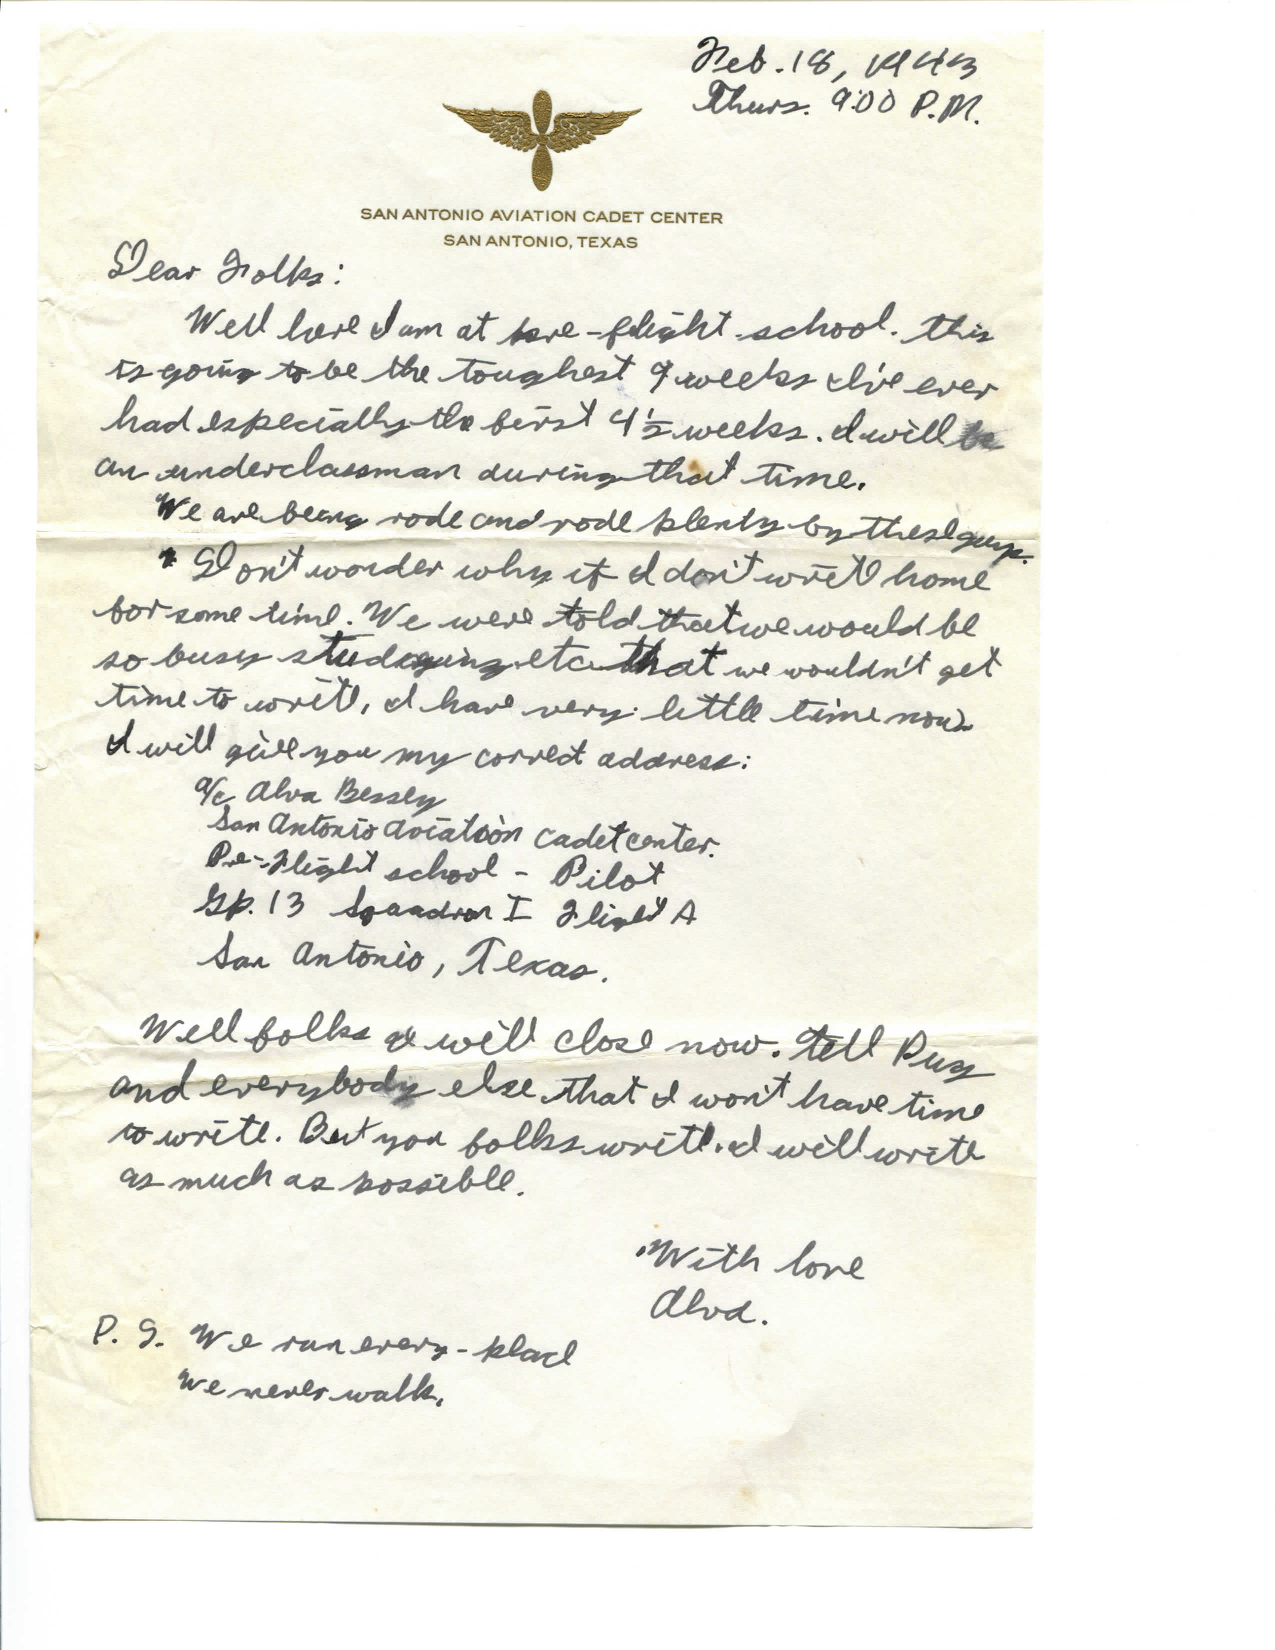 Feb. 18, 1943
Thurs. 9:00 P.M.
SAN ANTONIO AVIATION CADET CENTER
SAN ANTONIO, TEXAS
Dear Folks:
Well here I am at pre-flight school. This
is going to be the toughest 9 weeks I've ever
had especially the first 4½ weeks. I will be
an underclassman during that time.
We are being rode and rode plenty by these guys.
Don't wonder why if I don't write home
for some time. We were told that we would be
so busy studying etc that we wouldn't get
time to write, I have very little time now.
I will give you my correct address:
a/c Alva Bessey
San Antonio Aviation Cadet center.
Pre-Flight school - Pilot
Gp. 13 Squadron I Flight A
San Antonio, Texas.
Well folks I will close now. Tell
and everybody else that I won't have time
to write. But you folks write. I will write
as much as possible.
With love
Alva.
P. S. We run every-place
We never walk.